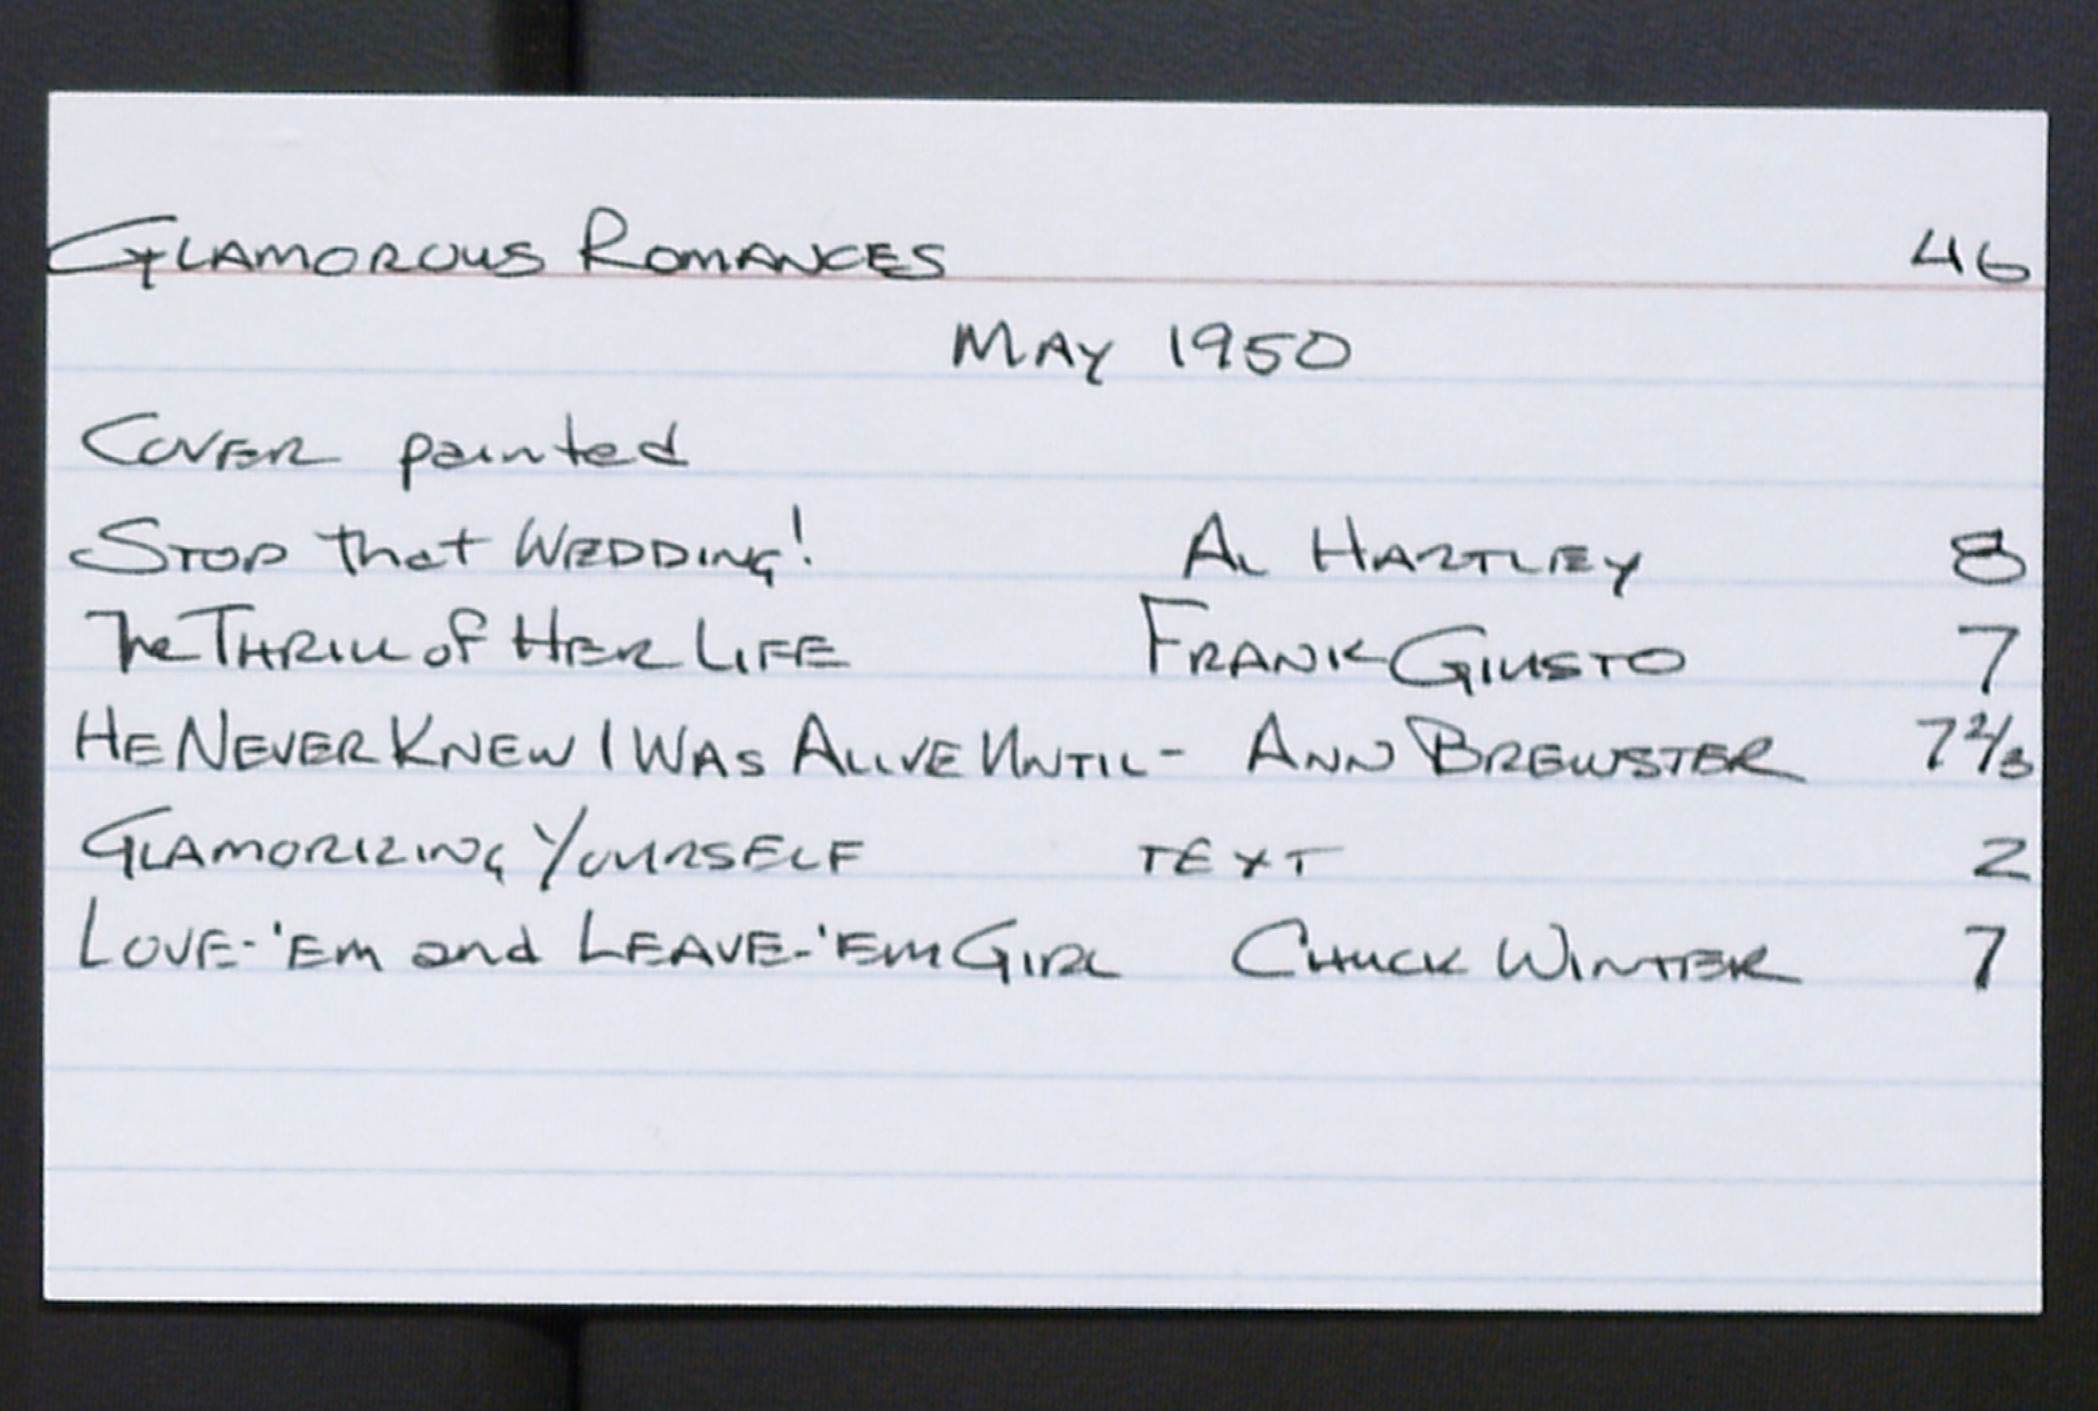 GLAMOROUS ROMANCES 46
MAY 1950
COVER painted
STOP that WEDDING! AL HARTLEY 8
The THRILL of HER LIFE FRANK GIUSTO 7
HE NEVER KNEW I WAS ALIVE UNTIL- ANN BREWSTER 7 2/3
GLAMORIZING YOURSELF TEXT 2
LOVE-'EM and LEAVE-'EM GIRL CHUCK WINTER 7